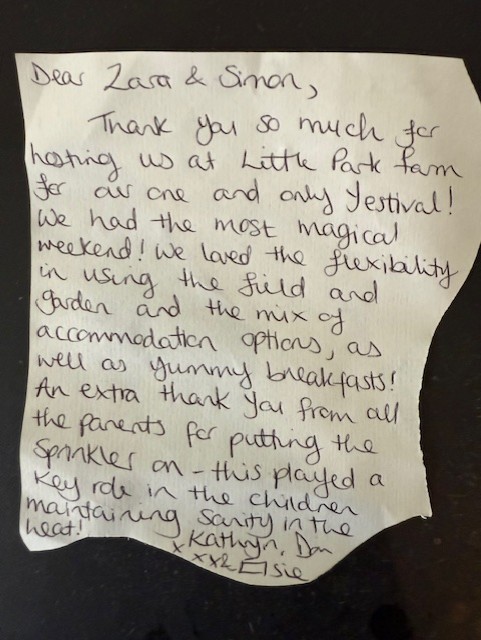 Dear Zara & Simon,
Thank you so much for
hosting us at Little Park farm
for our one and only Yestival!
We had the most magical
weekend! We loved the flexibility
in using the field and
garden and the mix of
accommodation options, as
well as yummy breakfasts!
An extra thank you from all
the parents for putting the
Sprinkler on - this played a
key role in the children
maintaining sanity in the
heat!
Kathryn, Dan
x xxx & Elsie